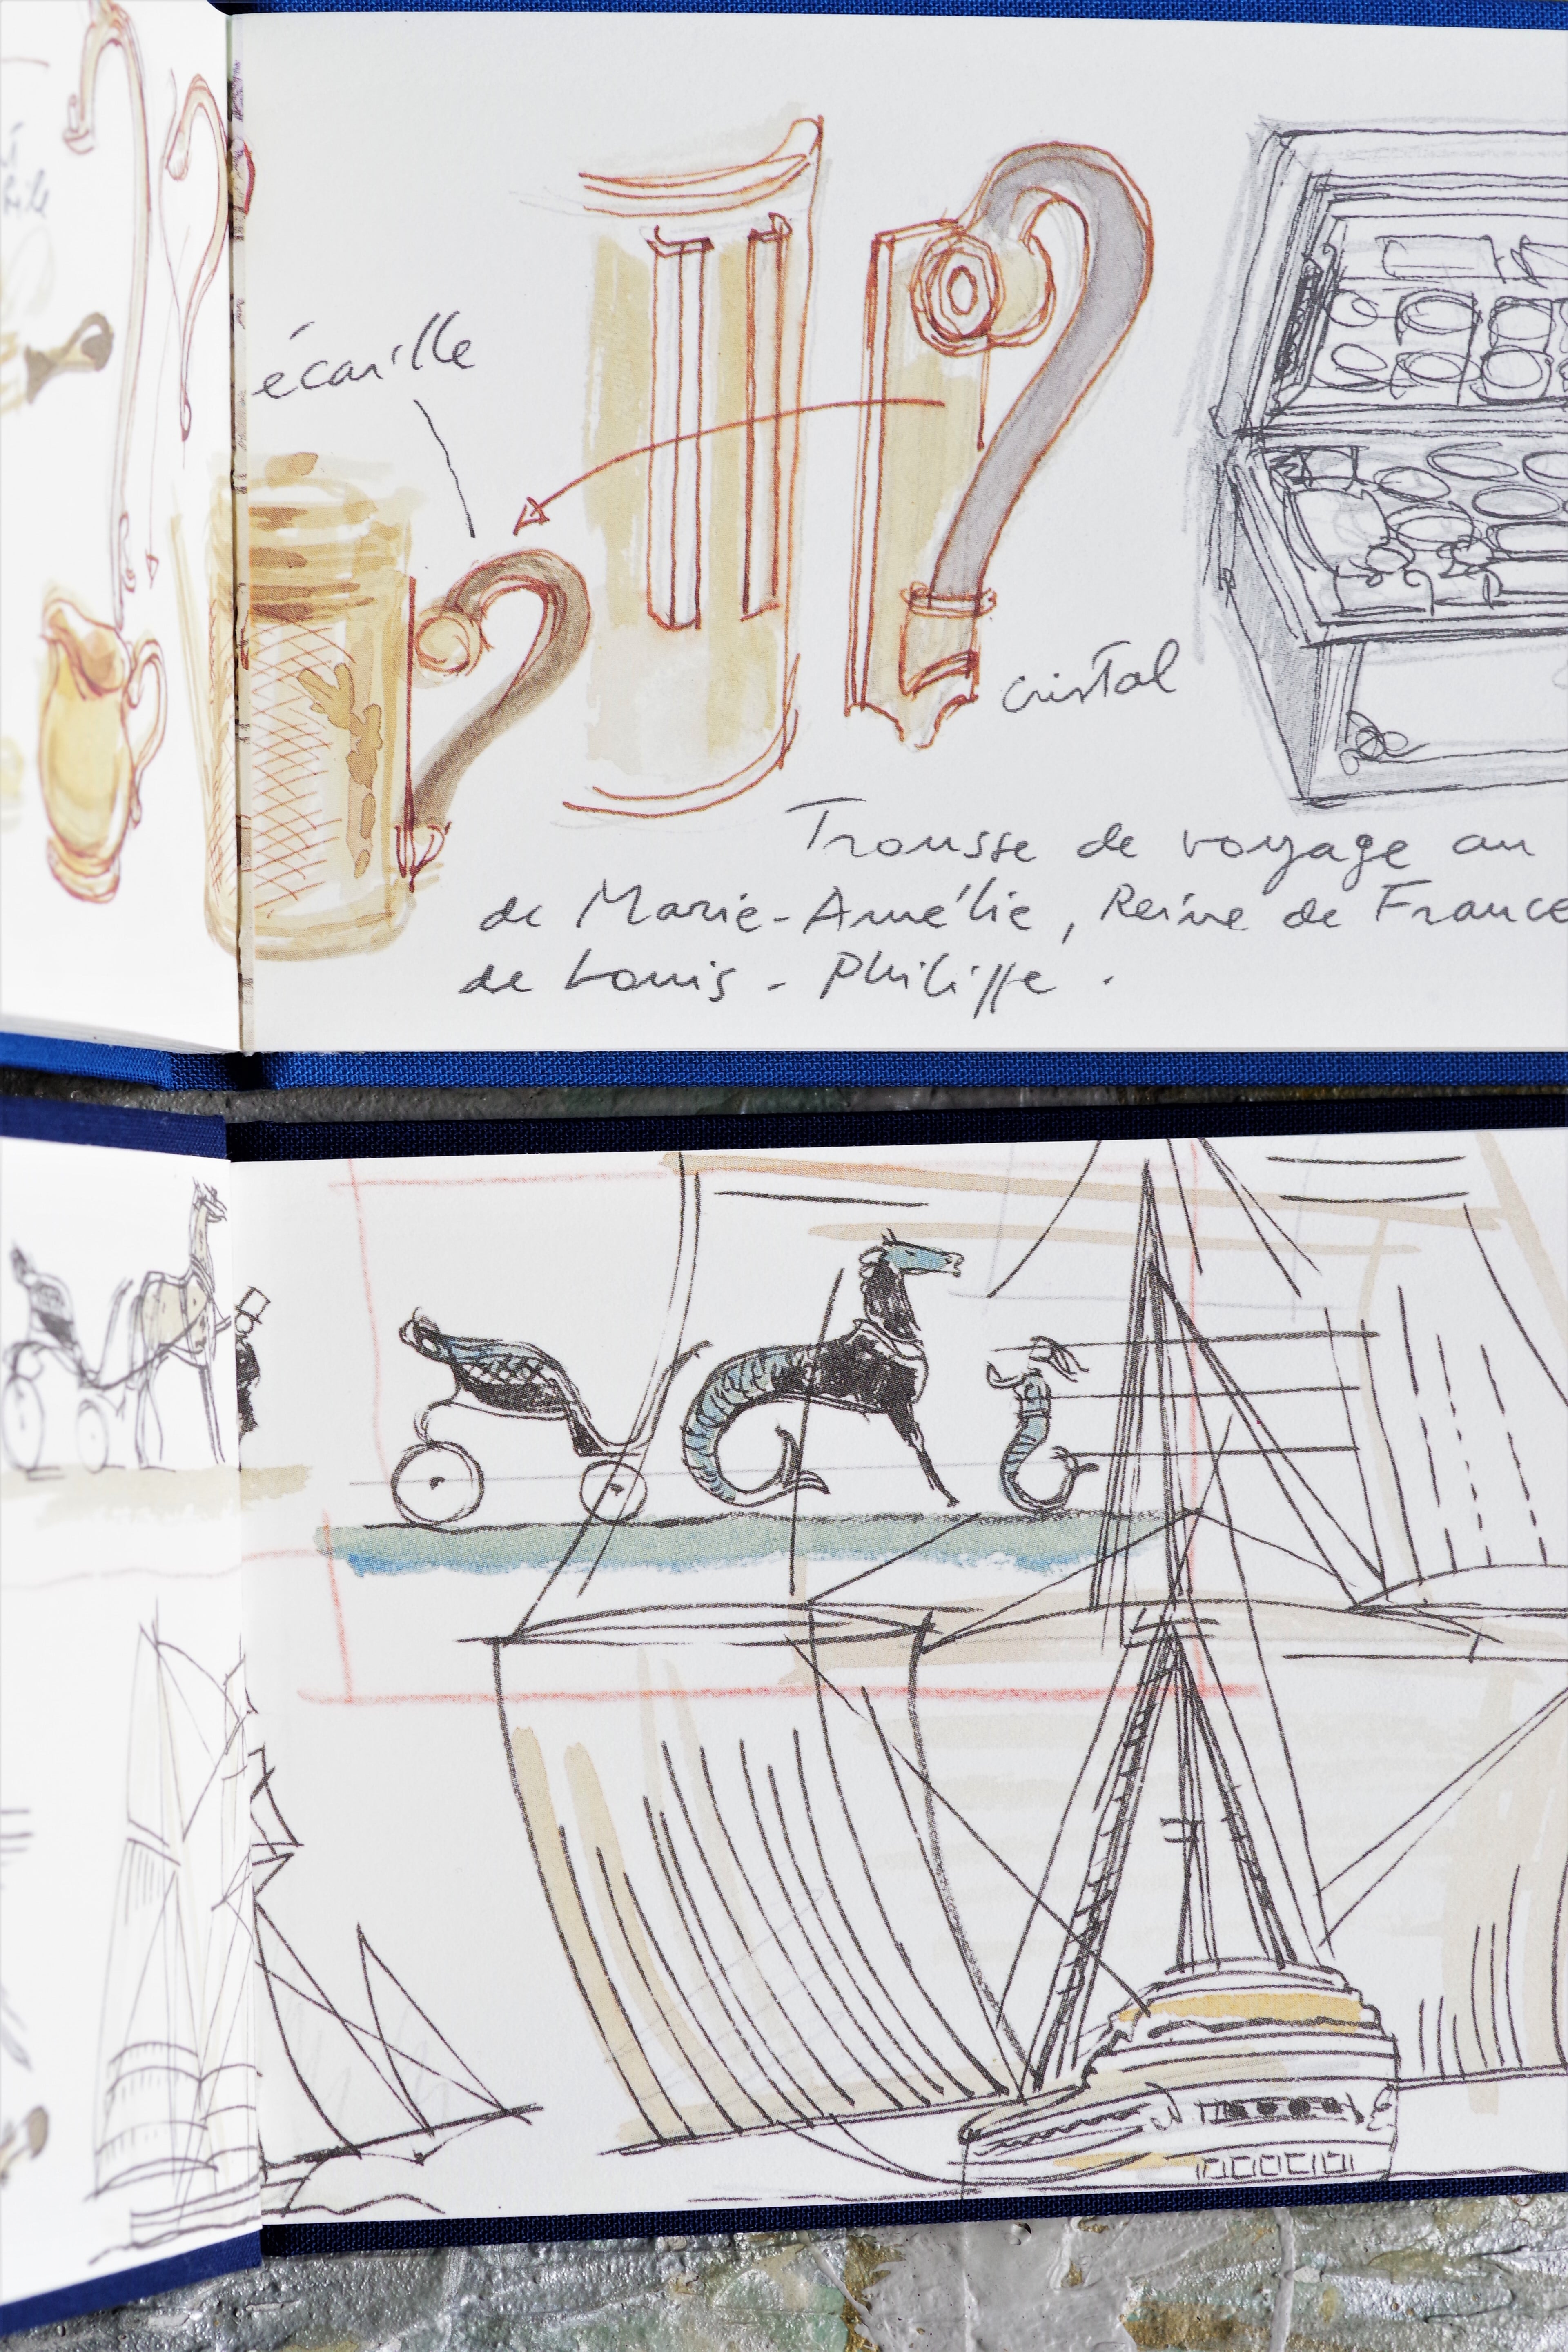 écaille
cristal
Trousse de voyage au
de Marie-Amélie, Reine de France
de Louis-Philippe.